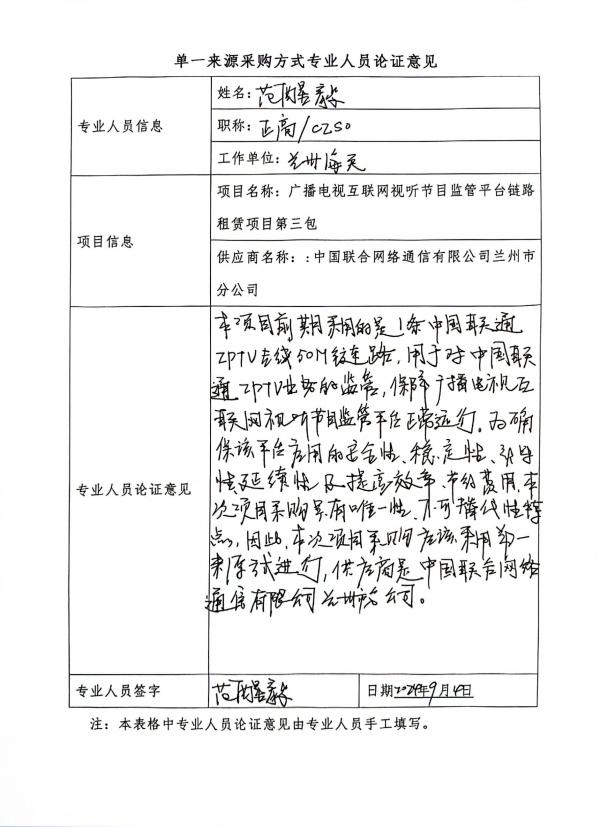 单一来源采购方式专业人员论证意见
专业人员信息
姓名：范
职称：正高/CZSO
工作单位：兰州海天
项目信息
项目名称：广播电视互联网视听节目监管平台链路
租赁项目第三包
供应商名称：:中国联合网络通信有限公司兰州市
分公司
专业人员论证意见
本项目前期采用的是1条中国联通
IPTV专线50M链路,用于对中国联
通IPTV业务的监管,保障广播电视互
联网视听节目监管平台正常运行。为确
保该平台应用的安全性、稳定性、
性延续性及提高效率、节约费用,本
次项目采购具有唯一性、不可替代性特
点,因此,本次项目采购应该采用单一
来源式进行,供应商是中国联合网络
通信有限公司兰州市分公司。
专业人员签字
范
日期2024年9月4日
注：本表格中专业人员论证意见由专业人员手工填写。